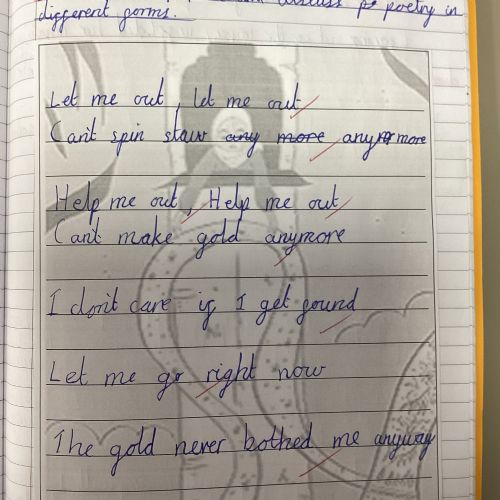 discuss poetry in
different forms.
Let me out, let me out
Can't spin staw any more anymore
Help me out, Help me out
Can't make gold anymore
I don't care if I get found
Let me go right now
The gold never bothed me anyway